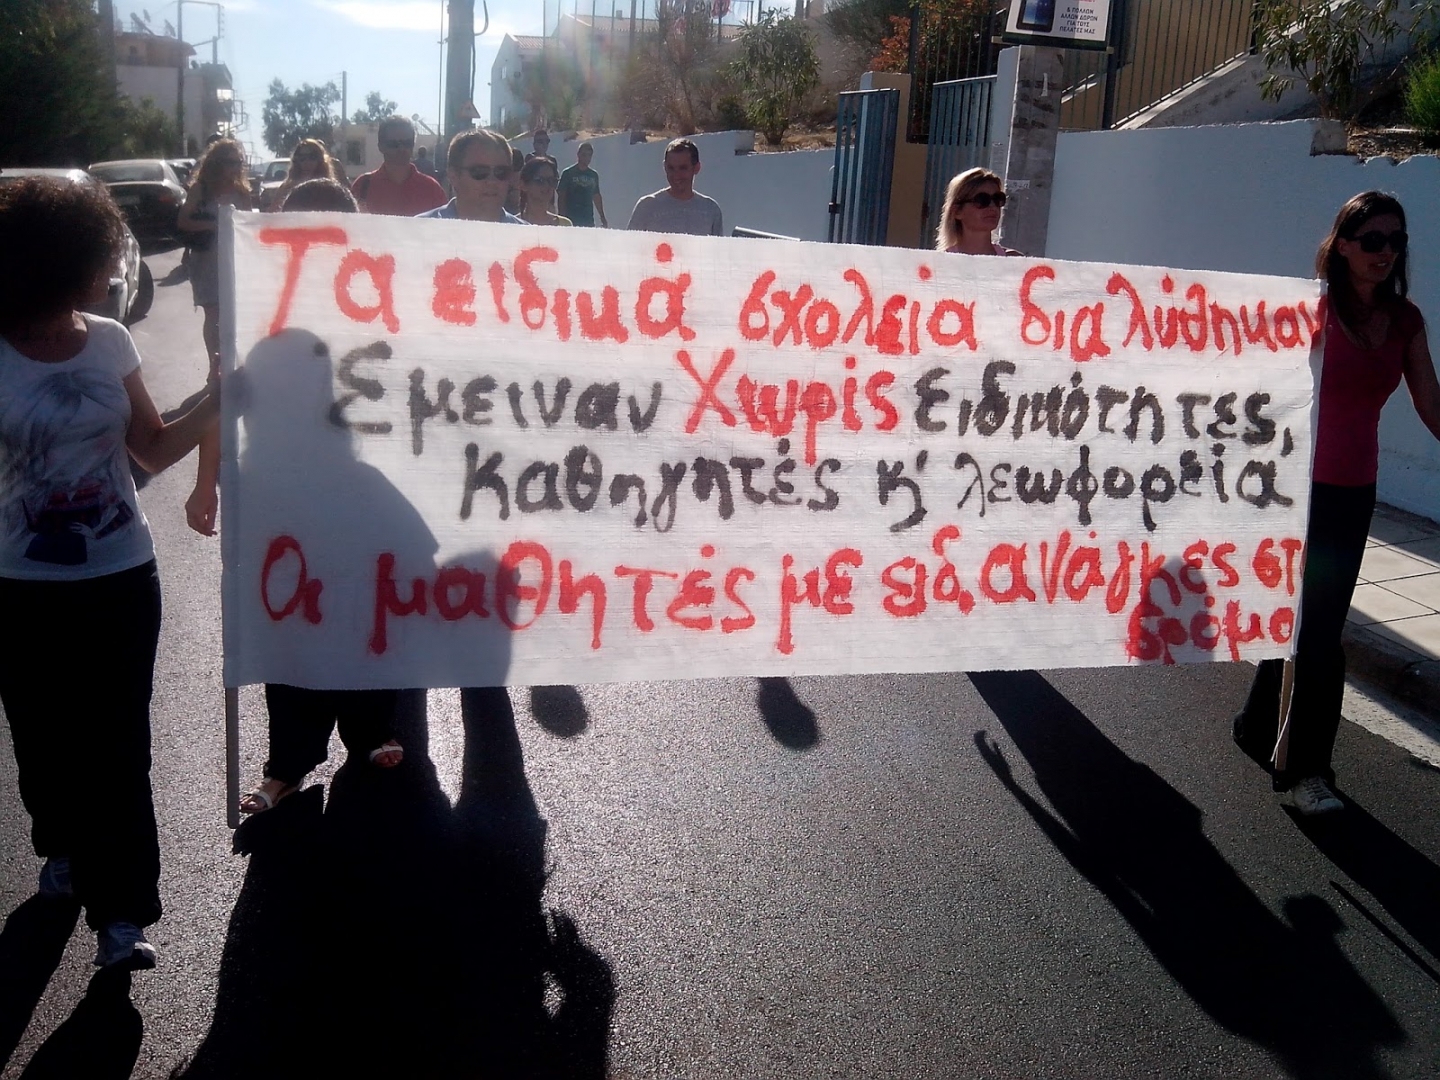 & ΠΟΛΛΩΝ
ΑΛΛΩΝ ΔΩΡΩΝ
ΓΙΑ ΤΟΥΣ
ΠΕΛΑΤΕΣ ΜΑΣ
Τα ειδικά σχολεία διαλύθηκαν
Έμειναν Χωρίς Ειδικότητες,
Καθηγητές κ' λεωφορεία
Οι μαθητές με ειδ. ανάγκες στ
δρόμο